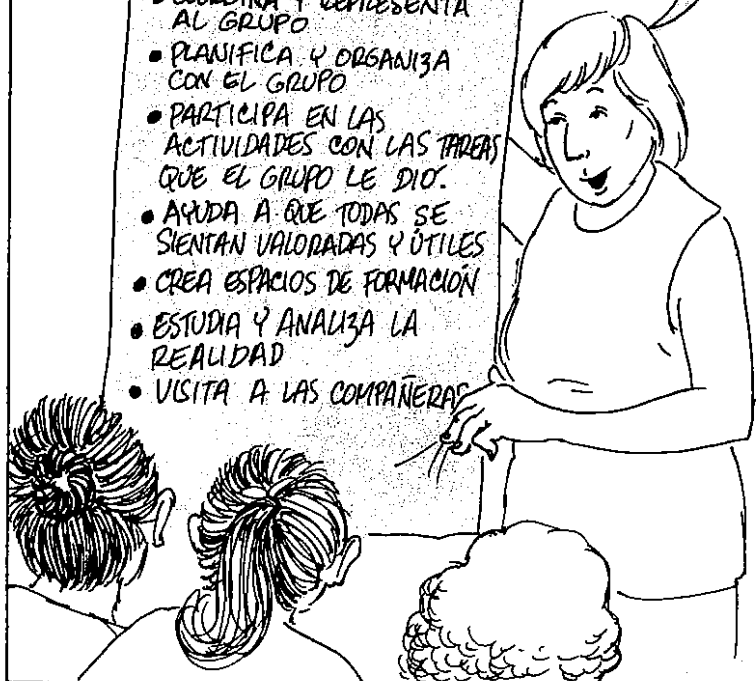 • COORDINA Y REPRESENTA
AL GRUPO
• PLANIFICA Y ORGANIZA
CON EL GRUPO
• PARTICIPA EN LAS
ACTIVIDADES CON LAS TAREAS
QUE EL GRUPO LE DIO.
• AYUDA A QUE TODAS SE
SIENTAN VALORADAS Y ÚTILES
• CREA ESPACIOS DE FORMACIÓN
• ESTUDIA Y ANALIZA LA
REALIDAD
• VISITA A LAS COMPAÑERAS